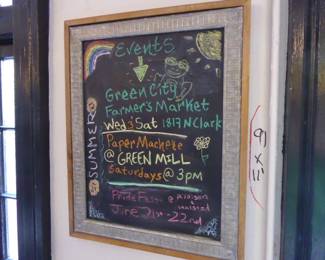 Events
SUMMER
Green City
Farmer's Market
Wed & Sat 1817 N Clark
Paper Machete
@ GREEN MILL
Saturdays @ 3pm
Pride Fest @
halsted
June 21st - 22nd
9 x 12"